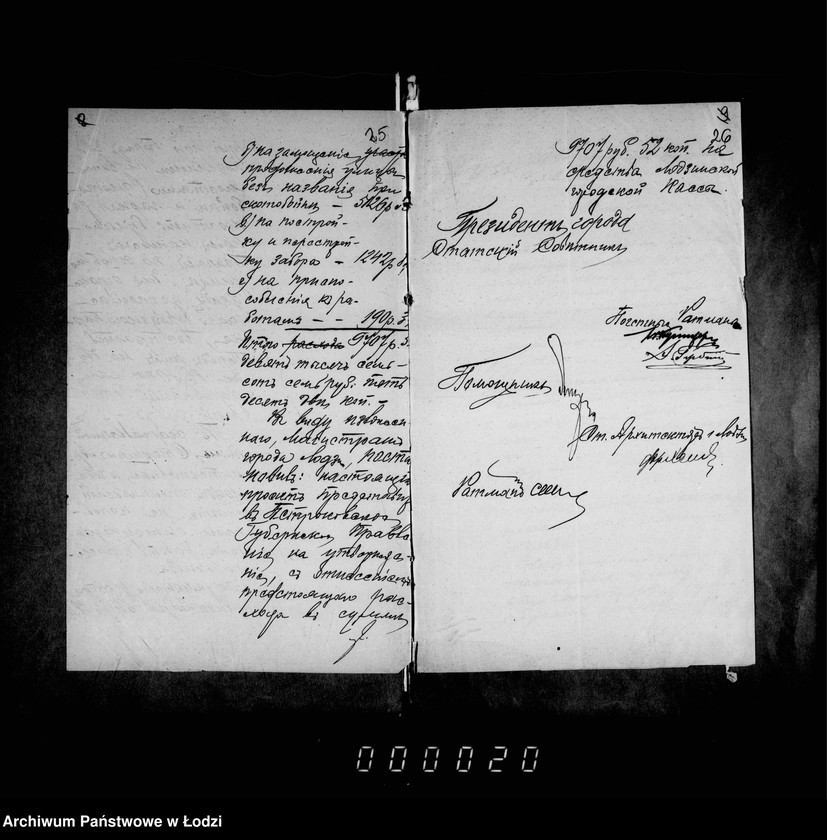 25
на замощеніе
продолженія улицы
безъ названія при
скотобойни – 5126 р.
в) на построй-
ку и перестрой-
ку забора – 1242 р.
г) на приспо-
собленія къ ра-
ботамъ – – 190 р.
Итого 9707 р.
девять тысячъ семь-
сотъ семь руб. пять
десятъ двѣ коп. –
Въ виду
магистратъ
города Лодзи, поста
новилъ: настоящій
проектъ представить
въ Петроковское
Губернское Правле
ніе на утвержде-
ніе, съ отнесеніемъ
предстоящаго рас-
хода въ суммѣ
26
9707 руб. 52 коп. на
средства Лодзинской
городской Кассы.
Президентъ города
Статскій Совѣтникъ
Почетные Ратмана
Помощникъ
Ст. Архитекторъ г. Лодзи
Ратманъ
000020
Archiwum Państwowe w Łodzi